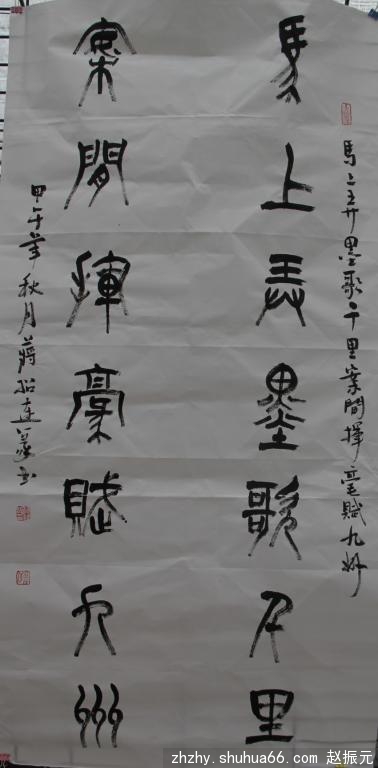 馬上弄墨歌千里
案間揮毫賦九州
馬上弄墨歌千里案間揮毫賦九州
甲午年秋月蔣紹連篆书
zhzhy.shuhua66.com 赵振元